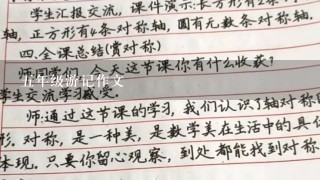 学生汇报交流，课件演示:长方形有2条
轴，正方形有4条对称轴，圆有无数条对称轴.
四.全课总结(赏对称)
今天这节课你有什么收获？
五年级游记作文
学生交流学习感受.
师:通过这节课的学习，我们认识了轴对称
形.对称，是一种美，是数学美在生活中的具
体现.只要你留心观察，到处都能找到对称